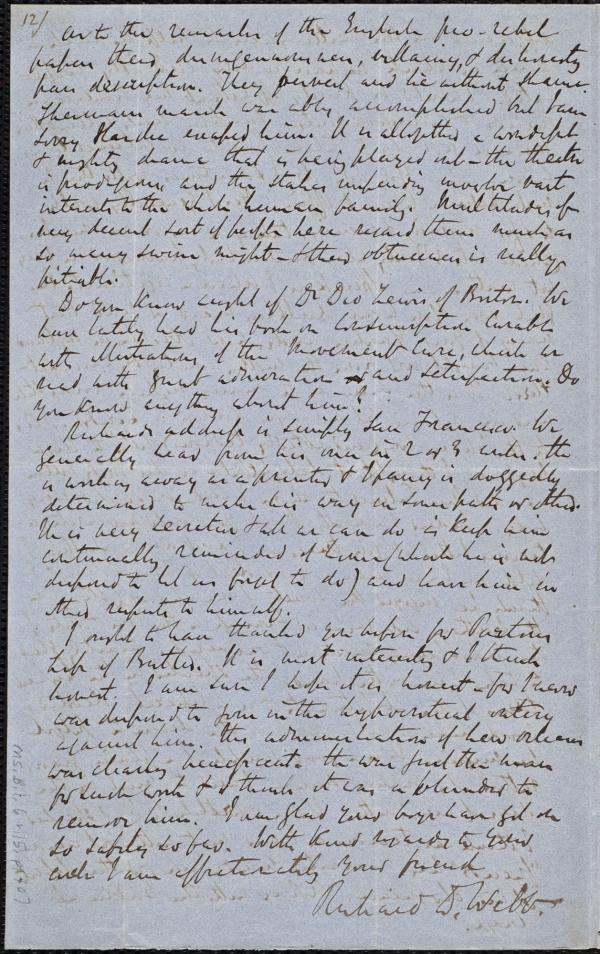 12/
As to the remarks of the English pro-rebel
papers their disingenuousness, villainy, & dishonesty
pass description. They pervert and lie without shame.
Sherman's march was ably accomplished but I am
sorry Hardee escaped him. It is altogether a wonderful
& mighty drama that is being played out - the theatre
is prodigious, and the stakes impending involve vast
interests to the whole human family. Multitudes of
very decent sort of people here regard them much as
so many swine might - & their obtuseness is really
pitiable.
Do you know aught of Dr Dio Lewis of Boston. We
have lately had his book on Consumption Curable
with illustrations of the Movement Cure, which we
read with great admiration and satisfaction. Do
you know anything about him?
Richard's address is simply San Francisco. We
generally hear from him once in 2 or 3 weeks. He
is working away as a printer & I fancy is doggedly
determined to make his way in some path or other.
He is very secretive & all we can do is keep him
continually reminded of home (which he is not
disposed to let us forget to do) and leave him in
other respects to himself.
I ought to have thanked you before for Parton's
Life of Butler. It is most interesting & I think
honest. I am sure I hope it is honest - for I never
was disposed to join in the hypocritical outcry
against him. His administration of New Orleans
was clearly beneficent. He was just the man
for such work & I think it was a blunder to
remove him. I am glad your boys have got on
so safely so far. With kind regards to your
circle I am affectionately your friend
Richard D. Webb.